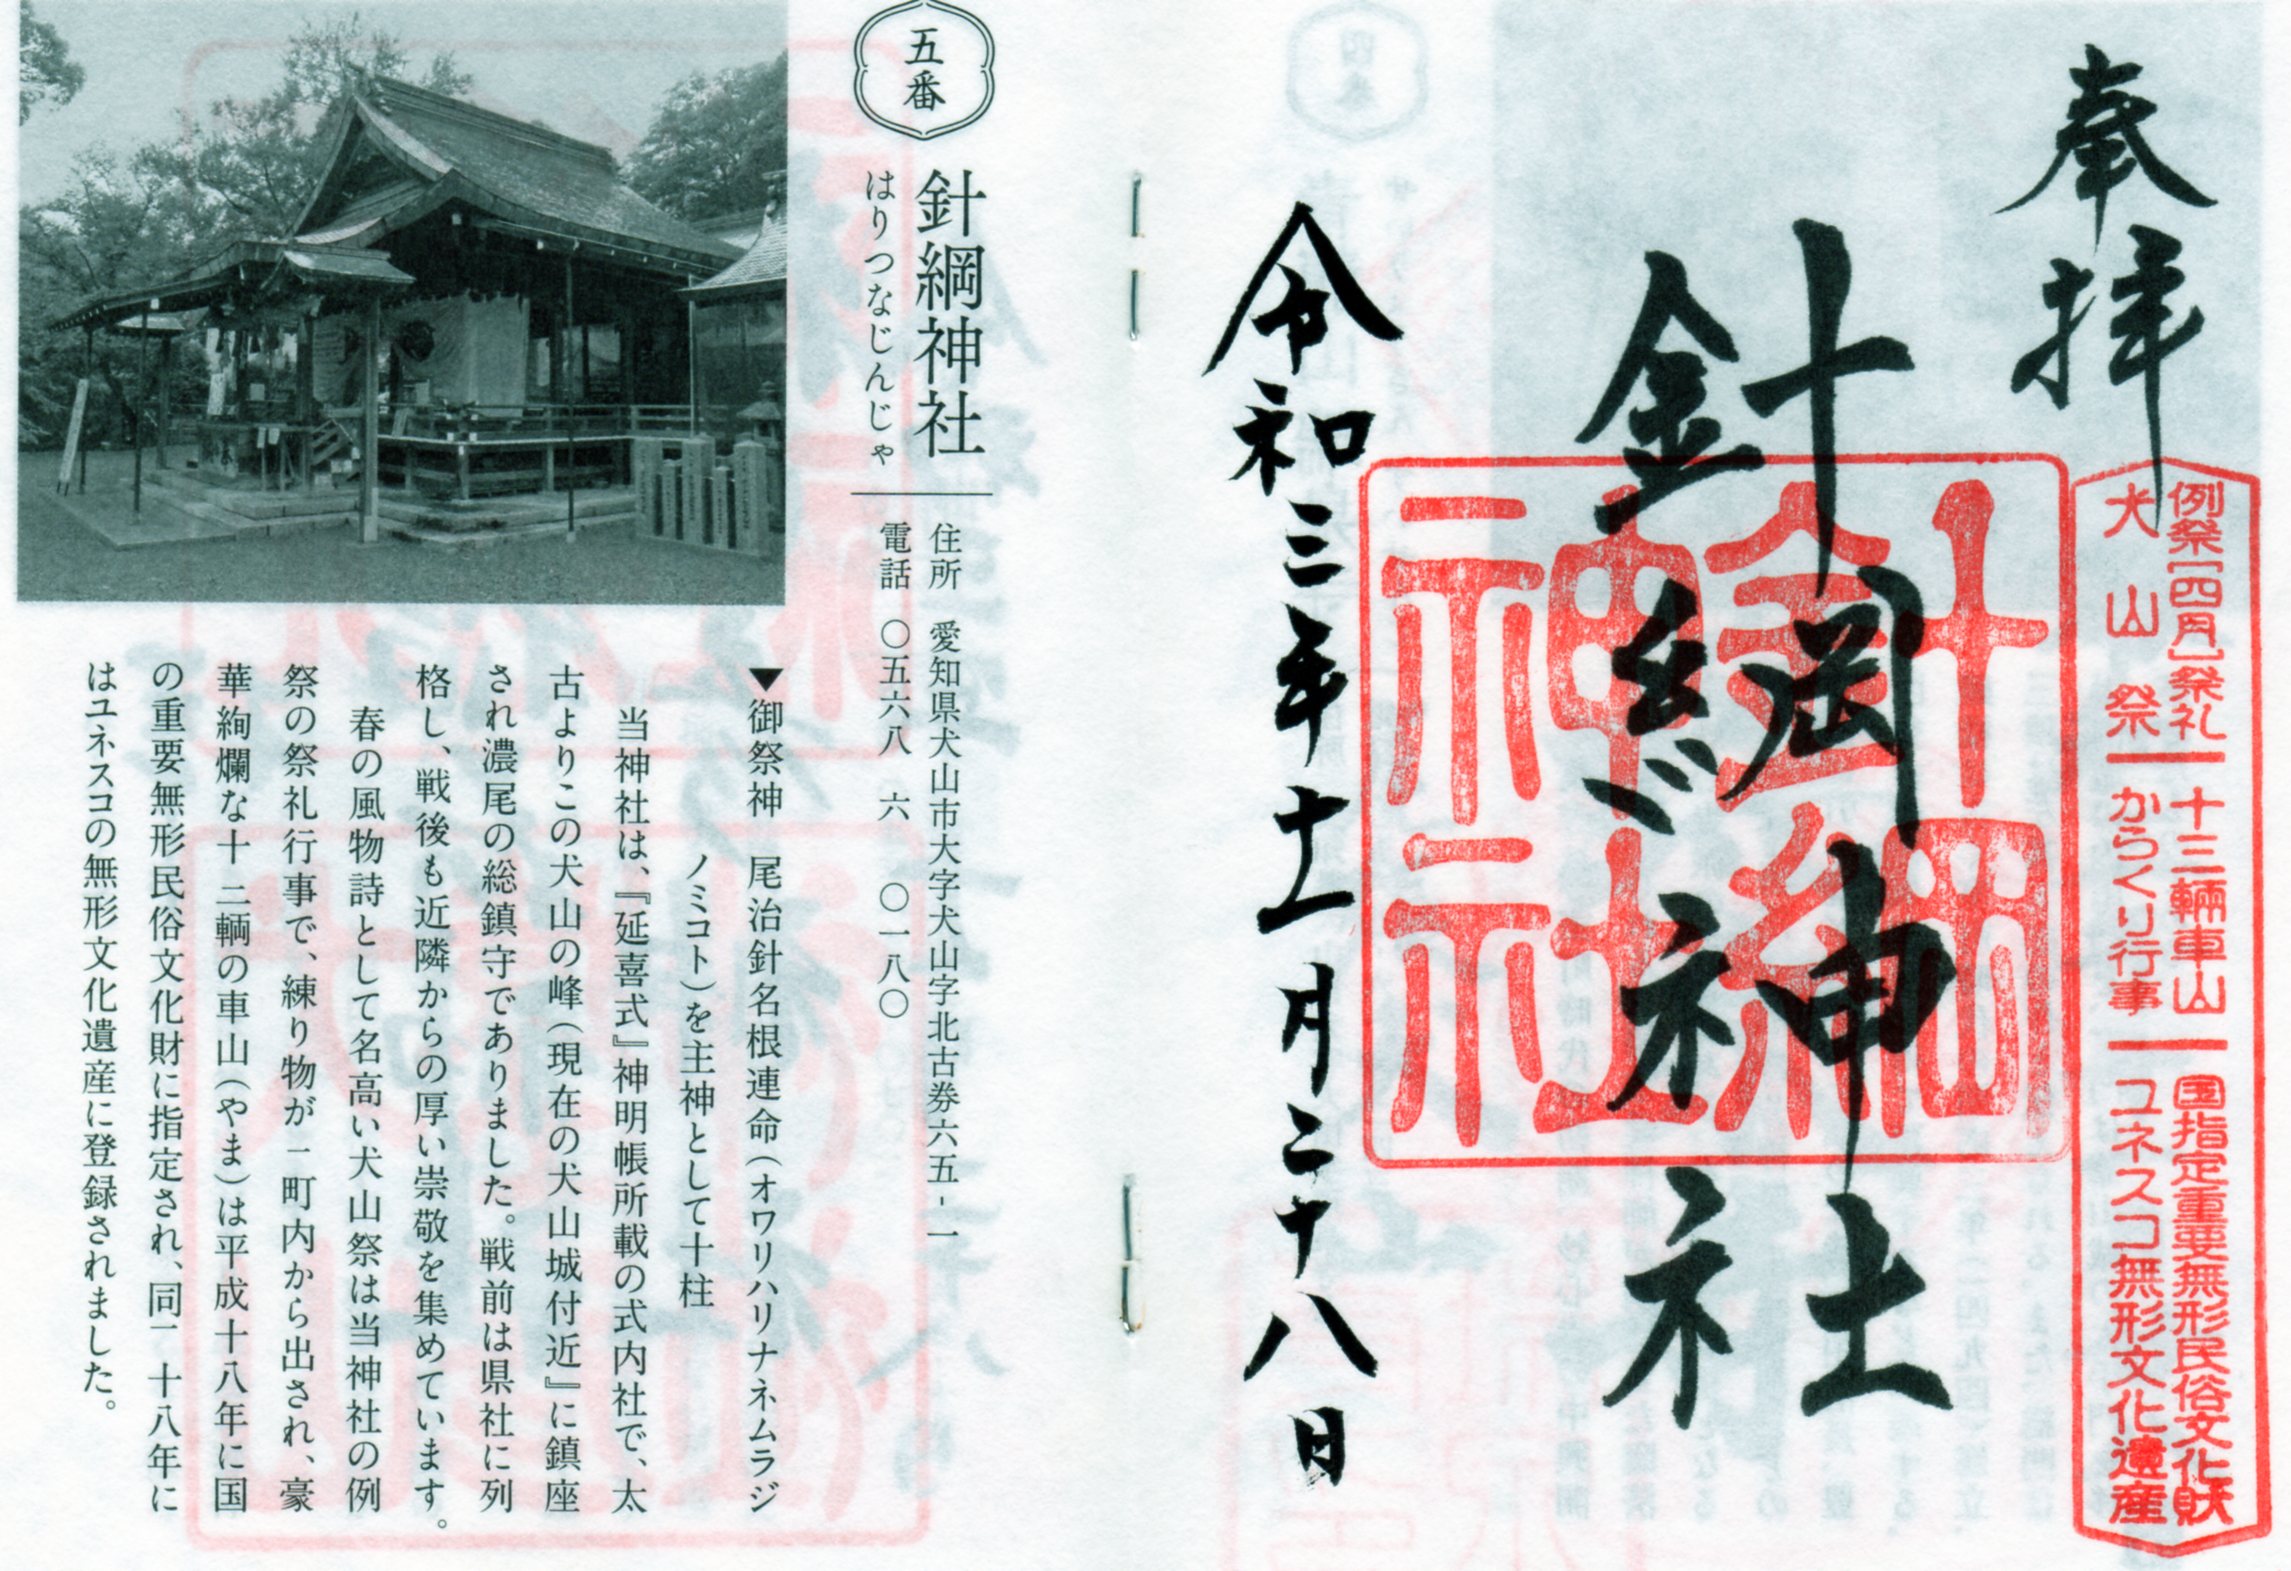 奉拝
針綱神社
令和三年十一月二十八日
針綱神社
例祭[四月]祭礼
犬山祭
十三輌車山
からくり行事
国指定重要無形民俗文化財
ユネスコ無形文化遺産
五番
針綱神社
はりつなじんじゃ
住所 愛知県犬山市大字犬山字北古券六五-一
電話 〇五六八 六一 〇一八〇
▼御祭神 尾治針名根連命(オワリハリナネムラジ
ノミコト)を主神として十柱
当神社は、『延喜式』神明帳所載の式内社で、太
古よりこの犬山の峰(現在の犬山城付近』に鎮座
され濃尾の総鎮守でありました。戦前は県社に列
格し、戦後も近隣からの厚い崇敬を集めています。
春の風物詩として名高い犬山祭は当神社の例
祭の祭礼行事で、練り物が一町内から出され、豪
華絢爛な十二輌の車山(やま)は平成十八年に国
の重要無形民俗文化財に指定され、同二十八年に
はユネスコの無形文化遺産に登録されました。